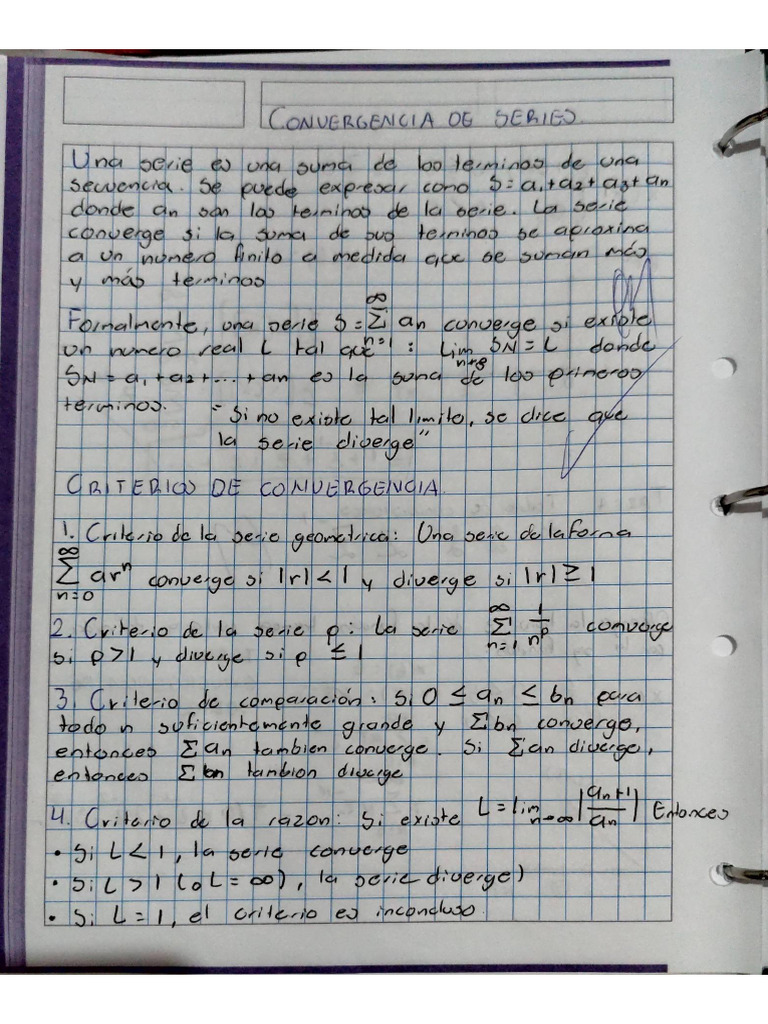 CONVERGENCIA DE SERIES
Una serie es una suma de los terminos de una
secuencia. Se puede expresar como S = a₁ + a₂ + a₃ + an
donde an son los terminos de la serie. La serie
converge si la suma de sus terminos se aproxima
a un numero finito a medida que se suman más
y más terminos
Formalmente, una serie S = ∞ Σ n=1 an converge si existe
un numero real L tal que : Lim n→∞ SN = L donde
SN = a₁ + a₂ + ... + an es la suma de los primeros
terminos. = Si no existe tal limite, se dice que
la serie diverge"
CRITERIOS DE CONVERGENCIA
1. Criterio de la serie geometrica: Una serie de la forma
∞ Σ n=0 arⁿ converge si |r| < 1 y diverge si |r| ≥ 1
2. Criterio de la serie p: La serie ∞ Σ n=1 1/nᵖ converge
si p > 1 y diverge si p ≤ 1
3. Criterio de comparación: Si 0 ≤ an ≤ bn para
todo n suficientemente grande y Σbn converge,
entonces Σan tambien converge. Si Σan diverge,
entonces Σbn tambien diverge
4. Criterio de la razon: Si existe L = lim n→∞ |an+1/an| Entonces
• Si L < 1, la serie converge
• Si L > 1 (o L = ∞), la serie diverge)
• Si L = 1, el criterio es inconcluso.